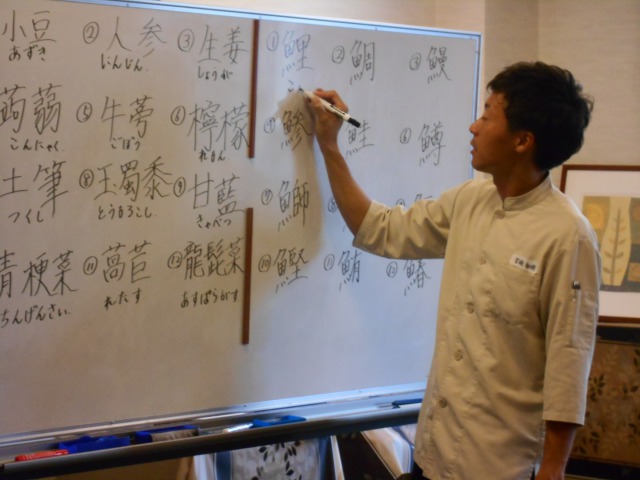 小豆 ②人参 ③生姜
あずき にんじん しょうが
蒟蒻 ⑤牛蒡 ⑥檸檬
こんにゃく ごぼう れもん
土筆 ⑧玉蜀黍 ⑨甘藍
つくし とうもろこし きゃべつ
青梗菜 ⑪萵苣 ⑫龍髭菜
ちんげんさい れたす あすぱらがす
①鯉 ②鯛 ③鰻
④鯵 鮭 ⑥鱒
⑦鰤
⑩鰹 ⑪鮪 ⑫鰆